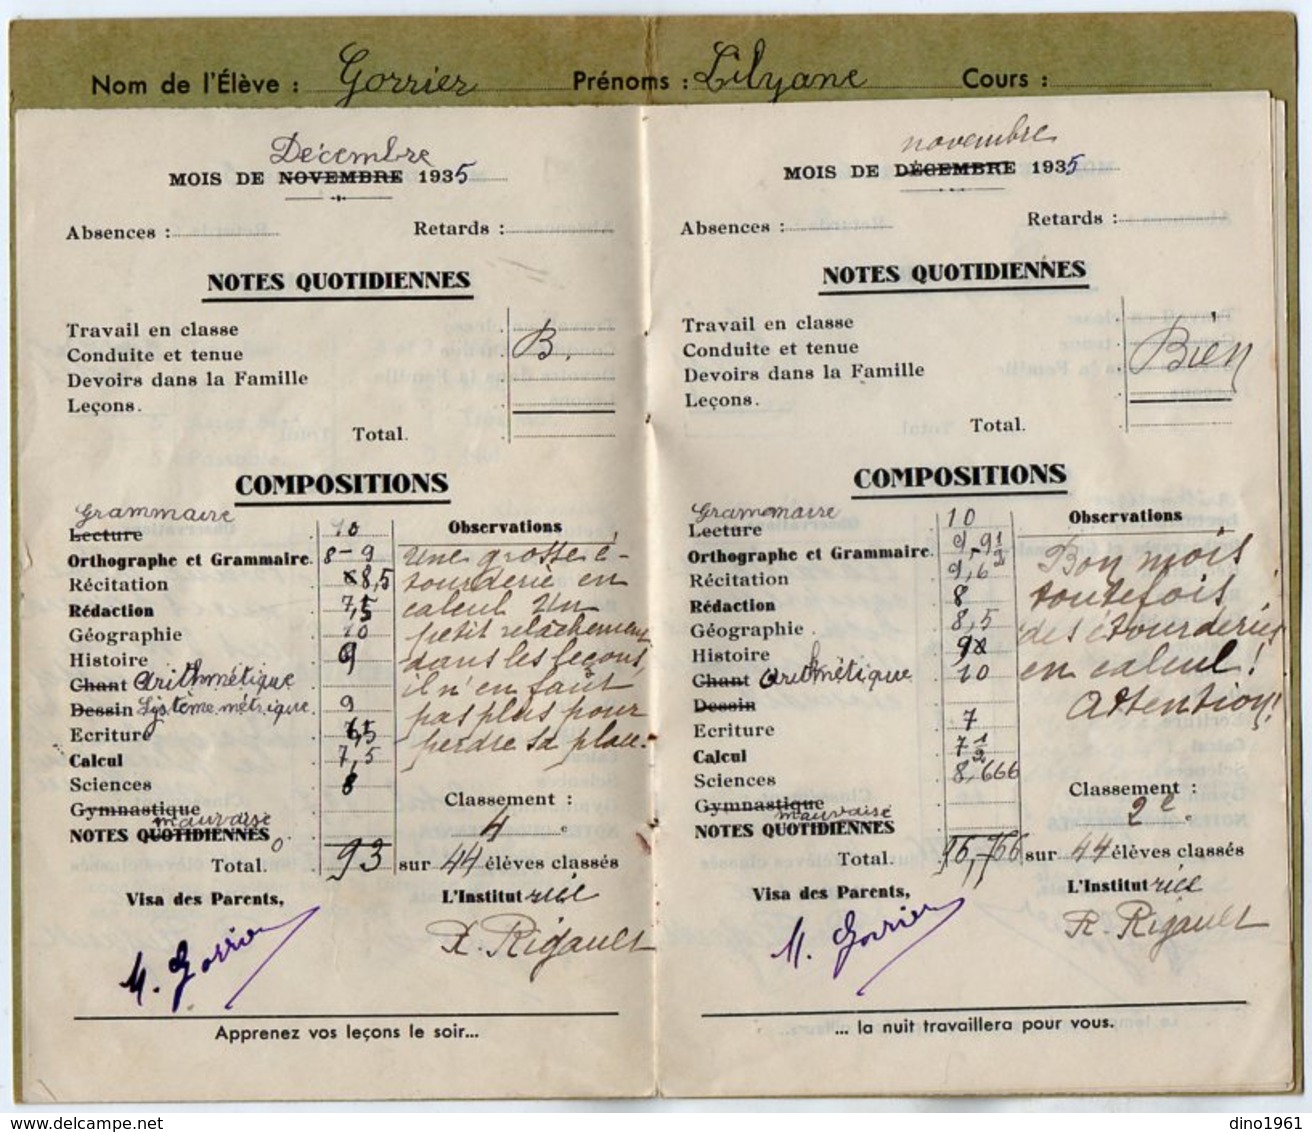 Nom de l'Élève : Gorrier Prénoms : Lilyane Cours :
Décembre
MOIS DE NOVEMBRE 1935
Absences : Retards :
NOTES QUOTIDIENNES
Travail en classe
Conduite et tenue B.
Devoirs dans la Famille
Leçons.
Total.
COMPOSITIONS
Grammaire
Lecture 10 Observations
Orthographe et Grammaire. 8-9 Une grosse é-
Récitation 8,5 tourderie en
Rédaction 7,5 calcul Un
Géographie 10 petit relâchement
Histoire 9 dans les leçons,
Chant Arithmétique il n'en faut
Dessin Système métrique 9 pas plus pour
Ecriture 6,5 perdre sa place.
Calcul 7,5
Sciences 8
Gymnastique Classement :
mauvaise
NOTES QUOTIDIENNES 0 4e
Total. 93 sur 44 élèves classés
Visa des Parents, L'Institutrice
M. Gorrier R. Rigault
Apprenez vos leçons le soir...
novembre
MOIS DE DÉCEMBRE 1935
Absences : Retards :
NOTES QUOTIDIENNES
Travail en classe
Conduite et tenue Bien
Devoirs dans la Famille
Leçons.
Total.
COMPOSITIONS
Grammaire
Lecture 10 Observations
Orthographe et Grammaire. 9-9 1/2 Bon mois
Récitation 9,6
Rédaction 8 toutefois
Géographie 8,5 des étourderies
Histoire
Chant Arithmétique 10 en calcul !
Dessin Attention!
Ecriture 7
Calcul 7 1/2
Sciences 8,666
Gymnastique Classement :
mauvaise
NOTES QUOTIDIENNES 2e
Total. sur 44 élèves classés
Visa des Parents, L'Institutrice
M. Gorrier R. Rigault
... la nuit travaillera pour vous.
dino1961